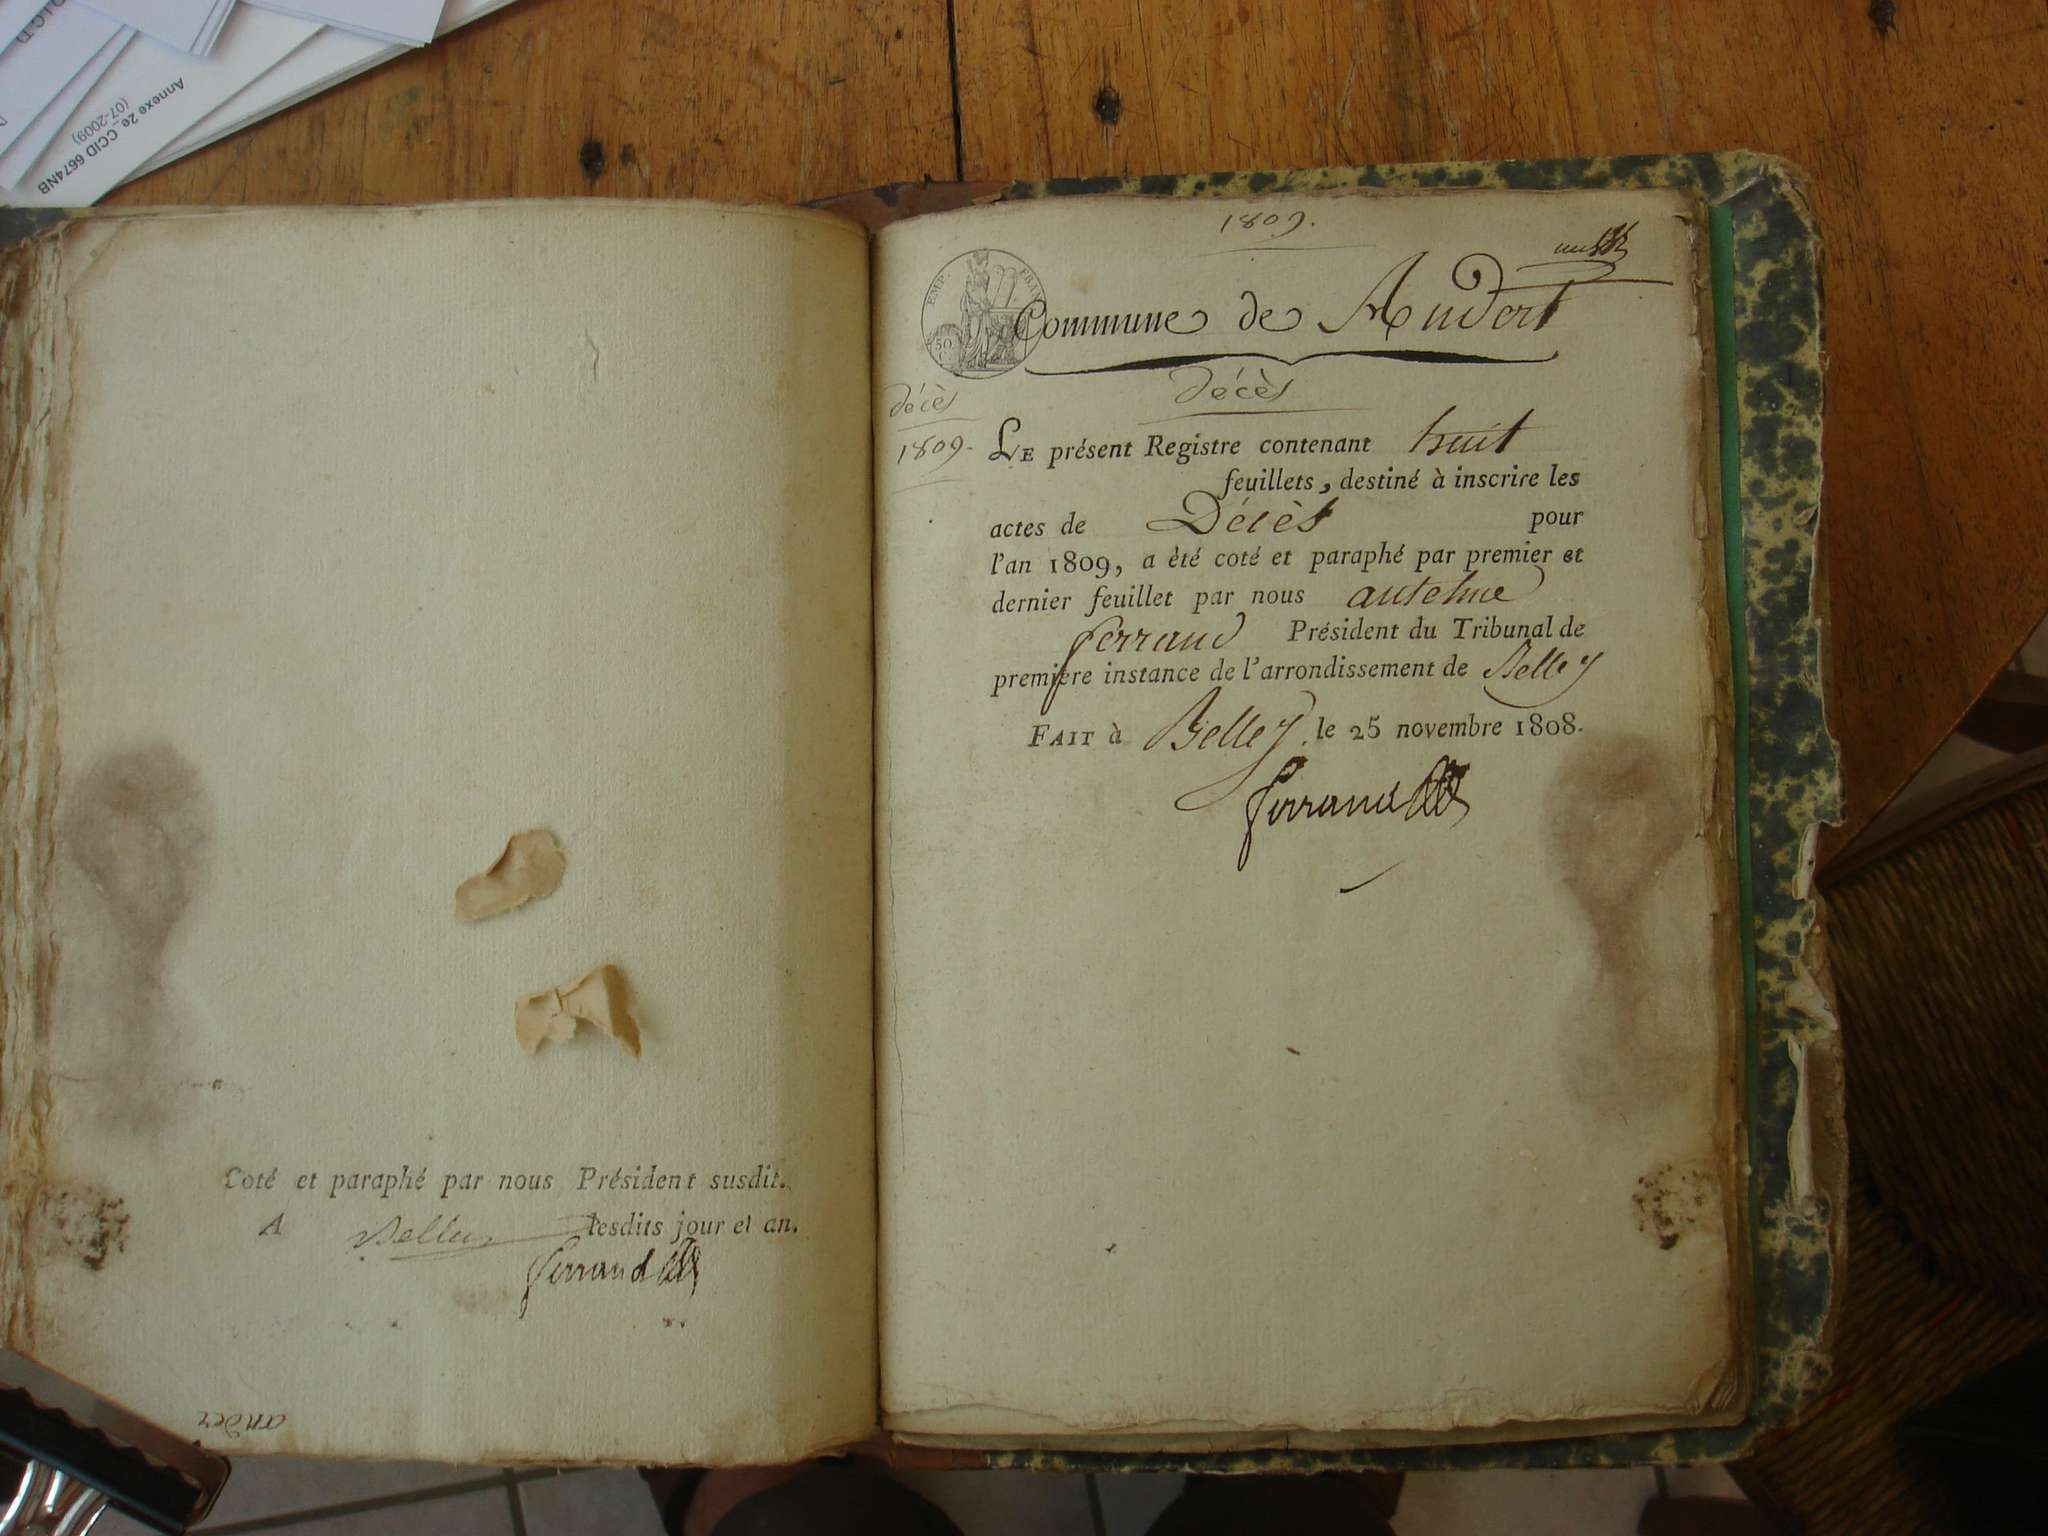 Annexe 2e_CCID 6674NB
(07-2009)
Coté et paraphé par nous Président susdit.
A Belley lesdits jour et an.
Ferrand
ander
1809.
EMP. FRAN
50
C.
Commune de Andert
décès
décès
1809.
LE présent Registre contenant huit
feuillets, destiné à inscrire les
actes de Décès pour
l'an 1809, a èté coté et paraphé par premier et
dernier feuillet par nous antelme
ferrand Président du Tribunal de
première instance de l'arrondissement de Belley
FAIT à Belley. le 25 novembre 1808.
Ferrand